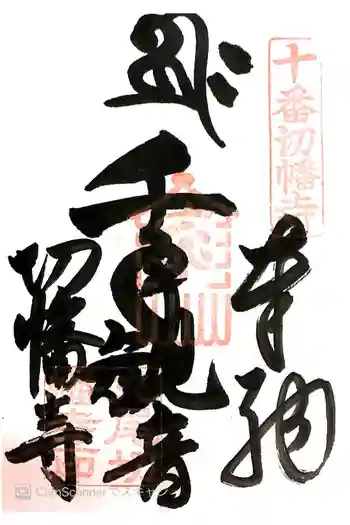 十番切幡寺
奉納
千手観音
切幡寺
CamScanner でスキャン